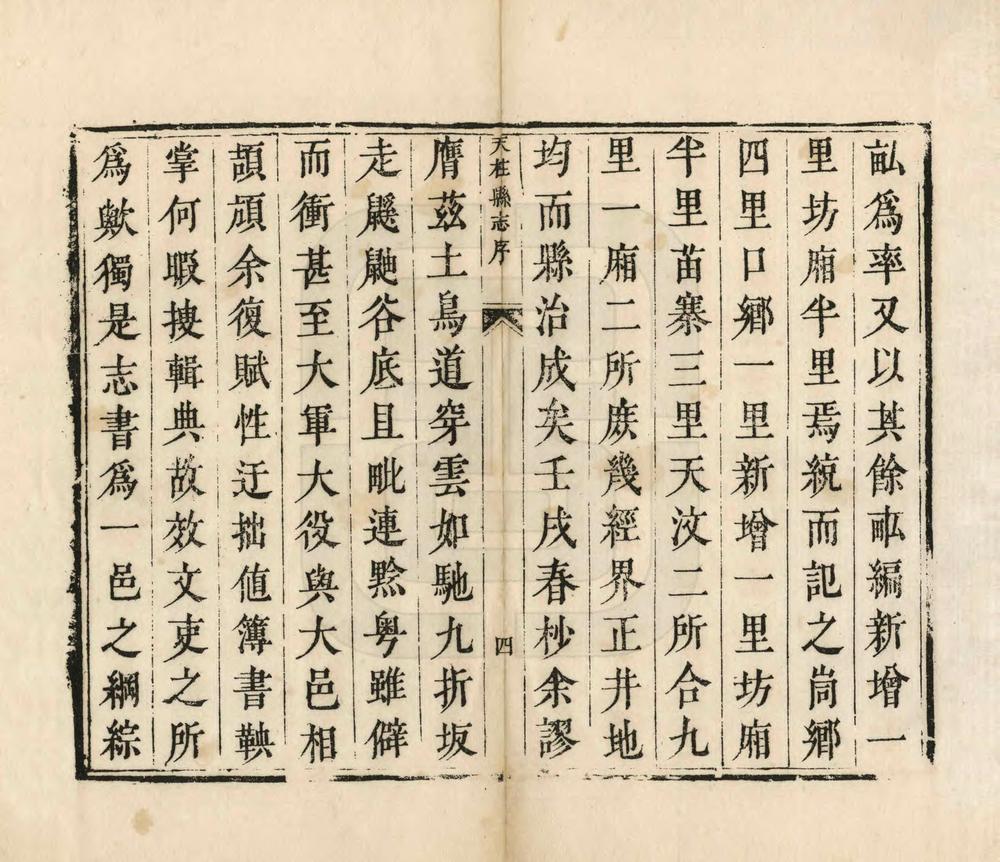 畝爲率又以其餘畝編新增一
里坊廂半里焉統而記之峝鄉
四里口鄉一里新增一里坊廂
半里苗寨三里天汶二所合九
里一廂二所庶幾經界正井地
均而縣治成矣壬戌春杪余謬
天柱縣志序
四
膺茲土鳥道穿雲如馳九折坂
走鼷鼬谷底且毗連黔粵雖僻
而衝甚至大軍大役與大邑相
頡頏余復賦性迂拙値簿書鞅
掌何暇搜輯典故效文吏之所
爲歟獨是志書爲一邑之綱綜